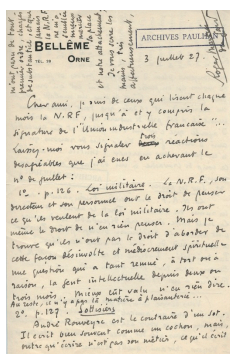 BELLÊME
ORNE
ARCHIVES PAULHAN
3 juillet 27
Cher ami, je suis de ceux qui lisent chaque
mois la N.R.F., jusqu'à et y compris la
signature de l'"Union industrielle française"...
Laissez-moi vous signaler trois réactions
désagréables que j'ai eues en achevant le
n° de juillet :
1°. - p. 126. Loi militaire. La N.R.F., son
directeur et son personnel ont le droit de penser
ce qu'ils veulent de la loi militaire. Ils ont
même le droit de n'en rien penser. Mais je
trouve qu'ils n'ont pas le droit d'aborder de
cette façon désinvolte et médiocrement spirituelle
une question qui a tant remué, à tort ou à
raison, la gent intellectuelle depuis deux ou
trois mois. Mieux eût valu n'en rien dire.
Au reste, il n'y a pas là matière à plaisanterie...
2°. p. 127.
André Rouveyre est le contraire d'un sot.
Il écrit bien souvent comme un cochon, mais,
outre qu'écrire n'est pas son métier, ce qu'il écrit